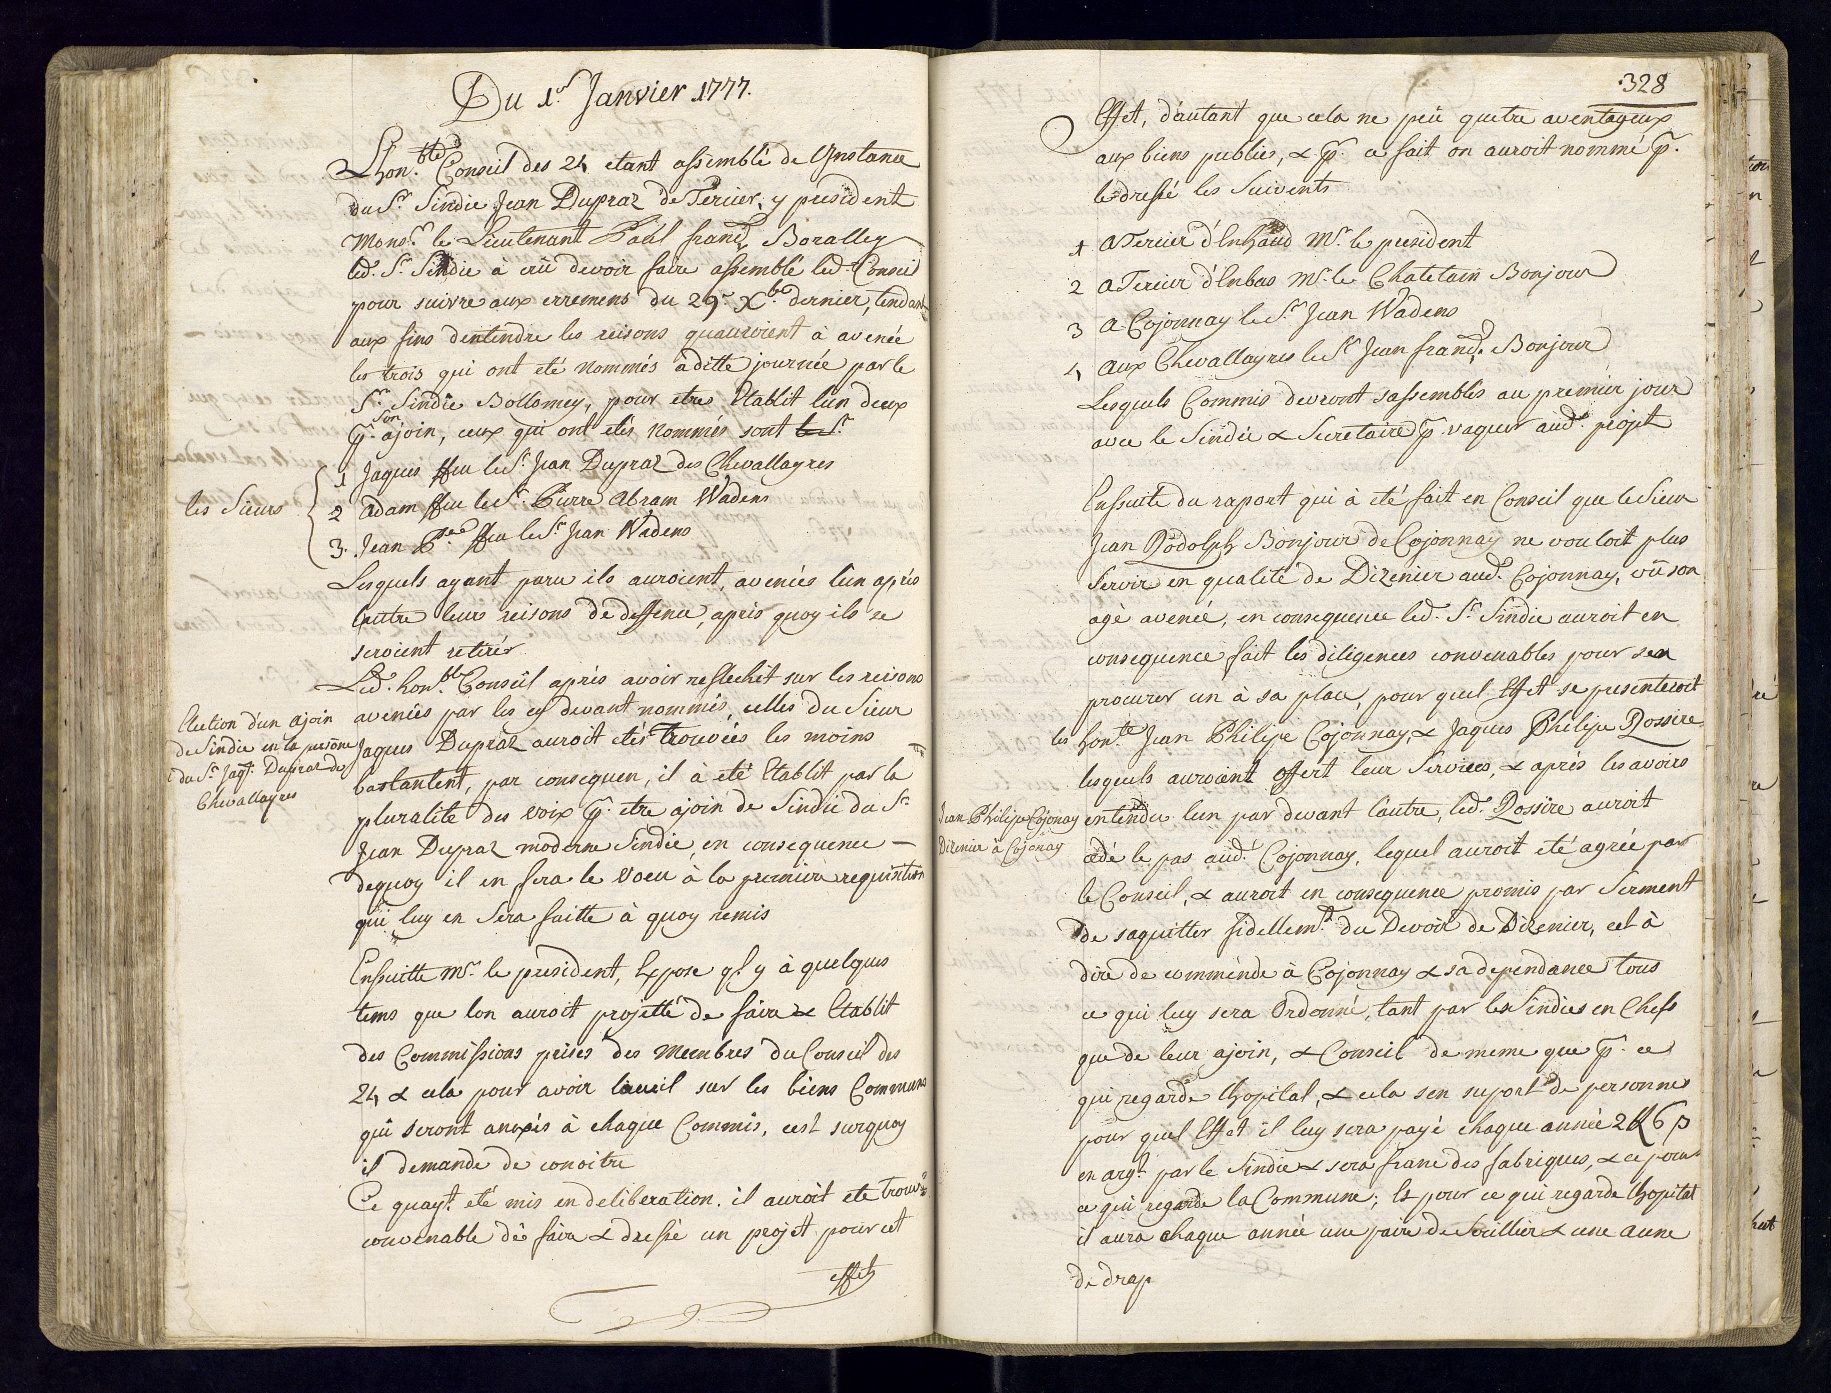 Du 1.er Janvier 1777.
Lhon.ble Conseil des 24 etant assemblé de L'Instance
du S.r Sindic Jean Dupraz de Tercier, y president
Mons.r le Lieutenant Paul franç. Boralley
led. S.r Sindic à crû devoir faire assemblé led. Conseil
pour suivre aux erremens du 29.e X.bre dernier, tendant
aux fins dentendre les reisons quauroient à avencé
les trois qui ont eté nommés aditte journée par le
S.r Sindic Bollomey, pour etres Etablit lun deux
p.r Son ajoin, ceux qui ont etés nommés sont le S.r
les Sieurs
1 Jaques ffeu le S.r Jean Dupraz des Chevallayres
2 Adam ffeu le S.r Pierre Abram Wadens
3. Jean ffeu le S.r Jean Wadens
Lesquels ayant paru ils auroient, avencés lun après
lautre leurs reisons de deffence, après quoy ils se
seroient retirés
Led. hon.ble Conseil après avoir reflechit sur les reisons
avencées par les cy devant nommés, celles du Sieur
Jaques Dupraz auroit etés trouvées les moins
bastantent, par consequen, il à eté Etablit par la
pluralité des voix p.r etre ajoin de Sindic du S.r
Jean Dupraz moderne Sindic, en consequence –
dequoy il en fera le voeu à la premiere requisition
qui luy en Sera faitte à quoy remis
Election d'un ajoin
de Sindic en la persone
du S.r Jaq.s Dupraz de
Chevallayres
Ensuitte M.r le president, Expose q.l y à quelques
tems que lon auroit projetté de faire & Etablit
des Commissions prises des Membres du Conseil des
24, & cela pour avoir laueil sur les biens Communs
qui seront anexés à chaque Commis, cest surquoy
il demande de conoitre
Ce quay.t eté mis en deliberation. il auroit eté trouvé
convenable de faire & dressé un projet pour cet
effet
328
Effet, dautant que cela ne peu quetre aventageux
aux biens publics, & p.r ce fait on auroit nommé p.r
le dressé les Suivents
1 A Tercier d'Enhaud M.r le president
2 A Tercier d'Enbas M.r le Chatelain Bonjour
3 A Cojonnay le S.r Jean Wadens
4 aux Chevallayres le S.r Jean franç. Bonjour
Lesquels Commis devront sassemblés au premier jour
avec le Sindic & Secretaire p.r vaquer aud. projet
Ensuite du raport qui à eté fait en Conseil que le Sieur
Jean Rodolph Bonjour de Cojonnay ne vouloit plus
Servir en qualité de Dizenier aud. Cojonnay, vû son
agé avencé, en consequence led. S.r Sindic auroit en
consequence fait les diligences convenables pour sen
procurer un à sa place, pour quel Effet se presenteroit
les hon.te Jean Philipe Cojonnay, & Jaques Philipe Rossire
lesquels auroient offert leur Services, & après les avoirs
entendu lun par devant lautre, led. Rossire auroit
cedé le pas aud. Cojonnay, lequel auroit eté agrée par
le Conseil, & auroit en consequence promis par Serment
de saquitter fidellem.t du Devoir de Dizenier, cet à
dire de commende à Cojonnay & sa dependance tous
ce qui luy sera Ordonné, tant par les Sindics en Chefs
que de leur ajoin, & Conseil de meme que p.r ce
qui regarde lhopital, & cela sen suport de personnes
Jean Philipe Cojonay
Dizenier à Cojonay
pour quel Effet il luy sera payé chaque année
en arg.t par le Sindic & sera franc des fabriques, & ce pour
ce qui regarde la Commune; Et pour ce qui regarde lhopital
il aura chaque année une paire de Soullier & une aune
de drap